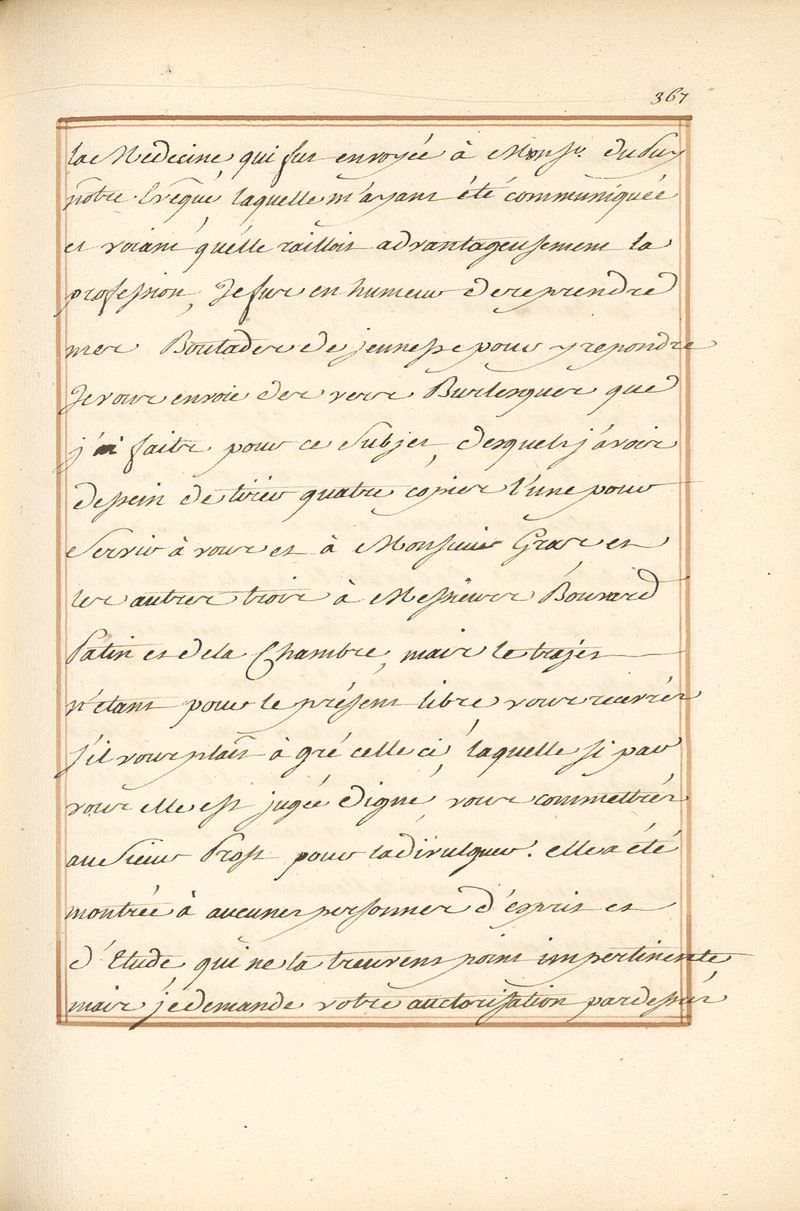 367
la Medecine qui fut envoyée à Mons.r du Puy
nôtre Evêque, laquelle m'ayant été communiquée
et voiant qu'elle railloit advantageusement la
profession, Je fus en humeur de reprendre
mes Boutades de jeunesse pour y repondre
Je vous envoie des vers Burlesques que
j'ai faits pour ce Subjet, desquels j'avois
dessein de tirer quatre copies l'une pour
Servir à vous et à Monsieur Gras et
les autres trois à Messieurs Bouvard
Patin et de la Chambre, mais le trajet
n'étant pour le présent libre vous recevrés
s'il vous plaît à gré celle ci, laquelle si par
vous elle est jugée digne, vous commettrés
au Sieur Prost pour la divulguer. elle a été
montrée à aucunes personnes d'esprit et
d'Etude qui ne la treuvent point impertinente
mais je demande votre auctorisation par dessus